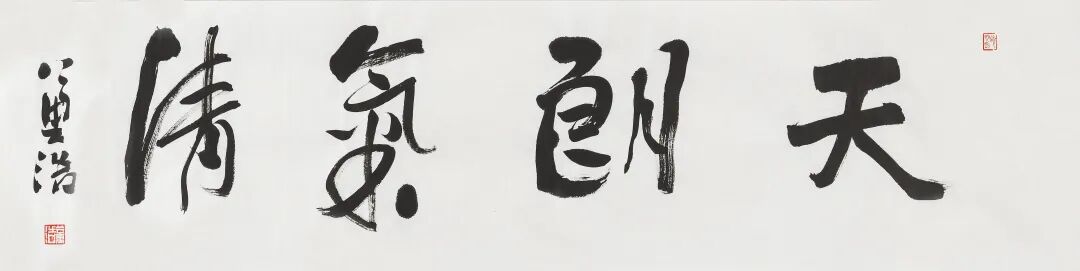 天朗氣清
浩